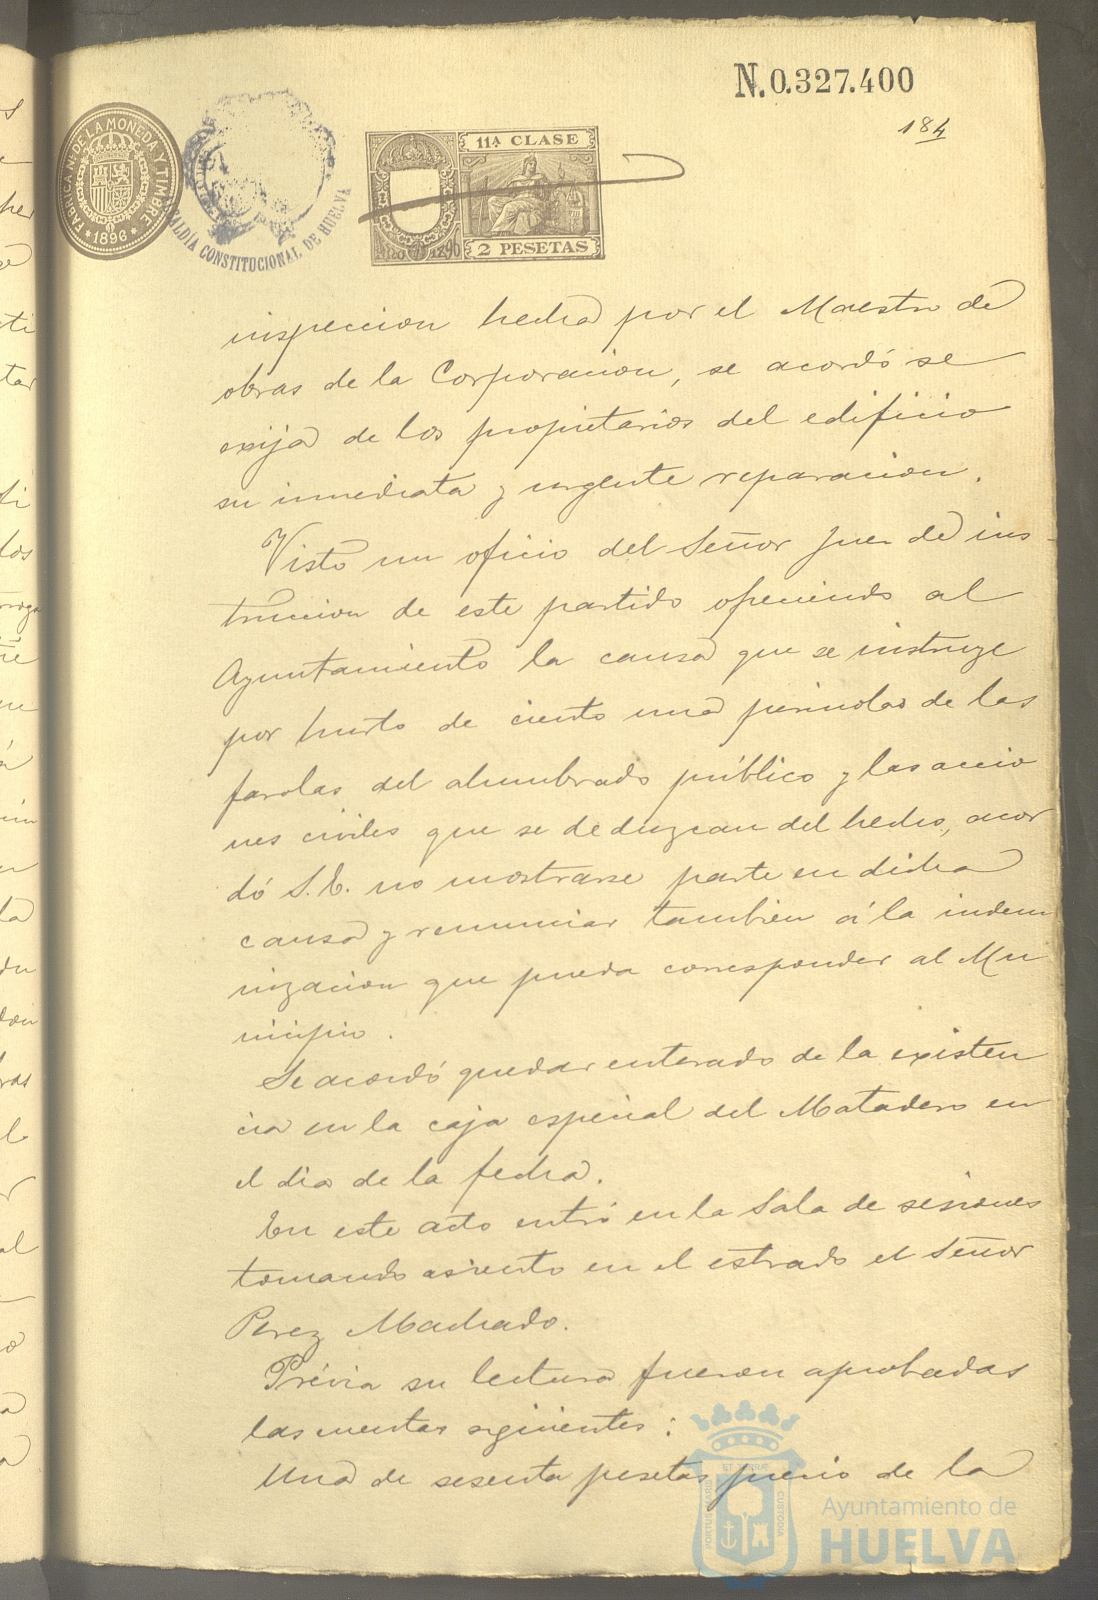 N.0.327.400
184
FABRICA Nal. DE LA MONEDA Y TIMBRE
1896
ALCALDÍA CONSTITUCIONAL DE HUELVA
11ª CLASE
2 PESETAS
inspeccion hecha por el Maestro de
obras de la Corporacion, se acordó se
exija de los propietarios del edificio
su inmediata y urgente reparacion.
Visto un oficio del Señor Juez de ins-
truccion de este partido ofreciendo al
Ayuntamiento la causa que se instruye
por hurto de ciento una perinolas de las
farolas del alumbrado público y las accio
nes civiles que se deduzcan del hecho, acor
dó S.E. no mostrarse parte en dicha
causa y renunciar tambien á la indem
nizacion que pueda corresponder al Mu
nicipio.
Se acordó quedar enterado de la existen
cia en la caja especial del Matadero en
el dia de la fecha.
En este acto entró en la Sala de sesiones
tomando asiento en el estrado el Señor
Perez Machado.
Prévia su lectura fueron aprobadas
las cuentas siguientes:
Una de sesenta pesetas precio de la
Ayuntamiento de
HUELVA